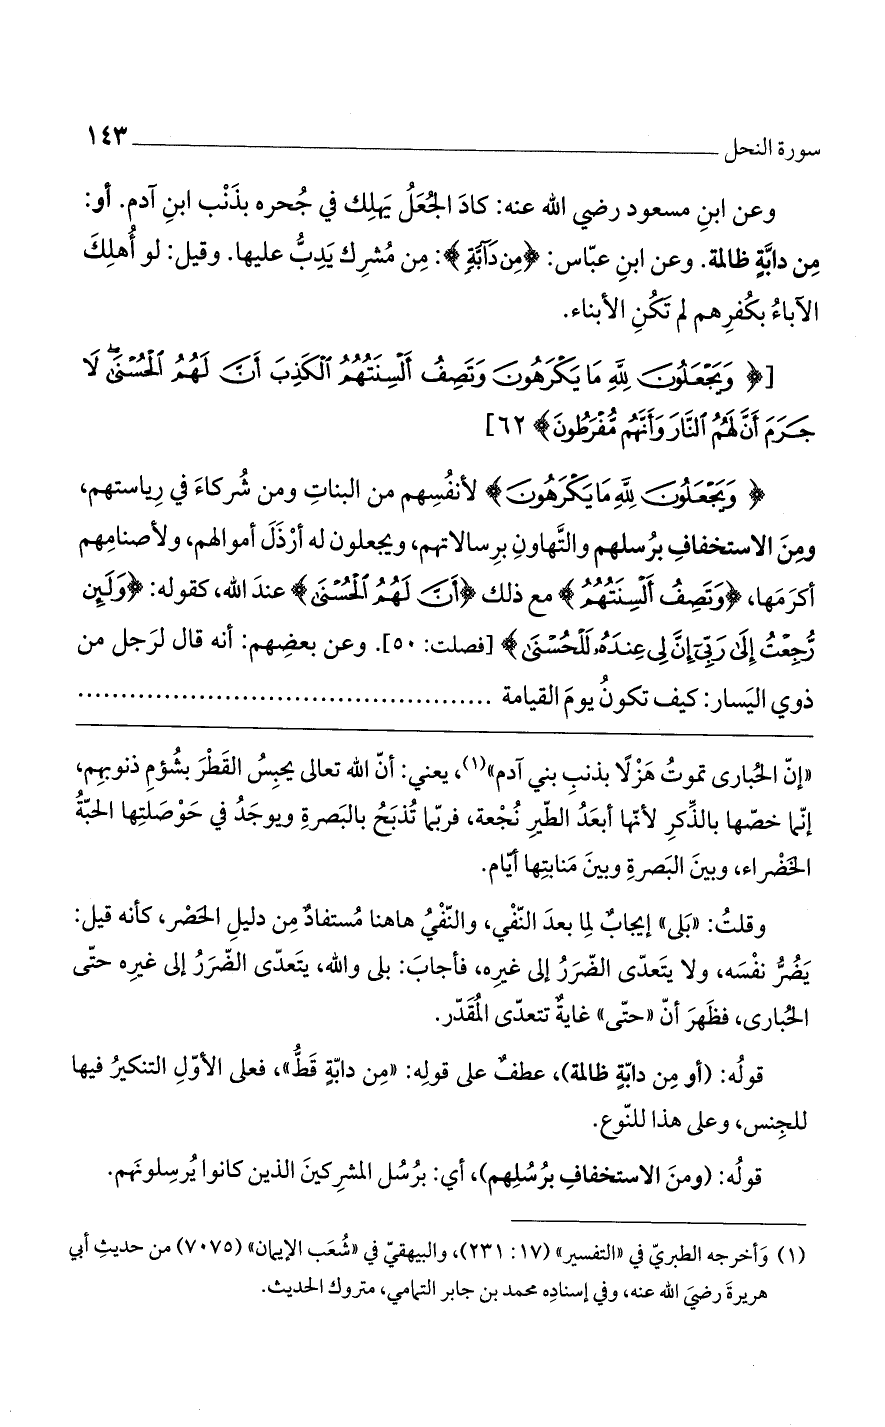 سورة النحل ــــــــــــــــــــ ١٤٣
وعن ابنِ مسعود رضي الله عنه: كادَ الجُعَلُ يَهلِك في جُحره بذَنْب ابنِ آدم. أو:
مِن دابَّةٍ ظالمة. وعن ابنِ عبّاس: ﴿مِن دَآبَّةٍ﴾: مِن مُشرِك يَدِبُّ عليها. وقيل: لو أُهلِكَ
الآباءُ بكُفرِهم لم تَكُنِ الأبناء.
[﴿وَيَجْعَلُونَ لِلَّهِ مَا يَكْرَهُونَ وَتَصِفُ أَلْسِنَتُهُمُ ٱلْكَذِبَ أَنَّ لَهُمُ ٱلْحُسْنَىٰ ۖ لَا
جَرَمَ أَنَّ لَهُمُ ٱلنَّارَ وَأَنَّهُم مُّفْرَطُونَ﴾ ٦٢]
﴿وَيَجْعَلُونَ لِلَّهِ مَا يَكْرَهُونَ﴾ لأنفُسِهم من البناتِ ومن شُركاءَ في رِياستهم،
ومِنَ الاستخفافِ برُسلهم والتَّهاونِ برِسالاتهم، ويجعلون له أرْذَلَ أموالهم، ولأصنامِهم
أكرَمَها، ﴿وَتَصِفُ أَلْسِنَتُهُمُ﴾ مع ذلك ﴿أَنَّ لَهُمُ ٱلْحُسْنَىٰ﴾ عندَ الله، كقوله: ﴿وَلَئِن
رُّجِعْتُ إِلَىٰ رَبِّىٓ إِنَّ لِى عِندَهُۥ لَلْحُسْنَىٰ﴾ [فصلت: ٥٠]. وعن بعضِهم: أنه قال لرَجل من
ذوي اليَسار: كيف تكونُ يومَ القيامة ................................................
«إنّ الحُبارى تموتُ هَزْلًا بذنبِ بني آدم»(١)، يعني: أنّ الله تعالى يحبِسُ القَطْرَ بشُؤمِ ذنوبهِم،
إنّما خصّها بالذِّكرِ لأنّها أبعَدُ الطّيرِ نُجْعة، فربّما تُذبَحُ بالبَصرةِ ويوجَدُ في حَوْصَلتِها الحبّةُ
الخَضْراء، وبينَ البَصرةِ وبينَ مَنابتِها أيّام.
وقلتُ: «بَلى» إيجابٌ لِما بعدَ النّفْي، والنّفْيُ هاهنا مُستفادٌ مِن دليلِ الحَصْر، كأنه قيل:
يَضُرُّ نفْسَه، ولا يتَعدّى الضّرَرُ إلى غيرِه، فأجابَ: بلى والله، يتَعدّى الضّرَرُ إلى غيرِه حتّى
الحُبارى، فظَهرَ أنّ «حتّى» غايةٌ تتعدّى المُقَدّر.
قولُه: (أو مِن دابّةٍ ظالمة)، عطفٌ على قولِه: «مِن دابّةٍ قَطُّ»، فعلى الأوّلِ التنكيرُ فيها
للجِنس، وعلى هذا للنّوع.
قولُه: (ومنَ الاستخفافِ برُسُلِهم)، أي: برُسُل المشرِكينَ الذين كانوا يُرسِلونَهم.
(١) وَأخرجه الطبريّ في «التفسير» (١٧: ٢٣١)، والبيهقيّ في «شُعَب الإيمان» (٧٠٧٥) من حديثِ أبي
هريرةَ رضيَ الله عنه، وفي إسنادِه محمد بن جابر التمامي، متروك الحديث.